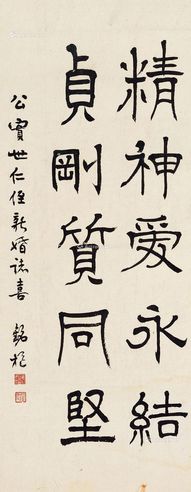 精神愛永結
貞剛質同堅
公寶世仁侄新婚誌喜 銘樞